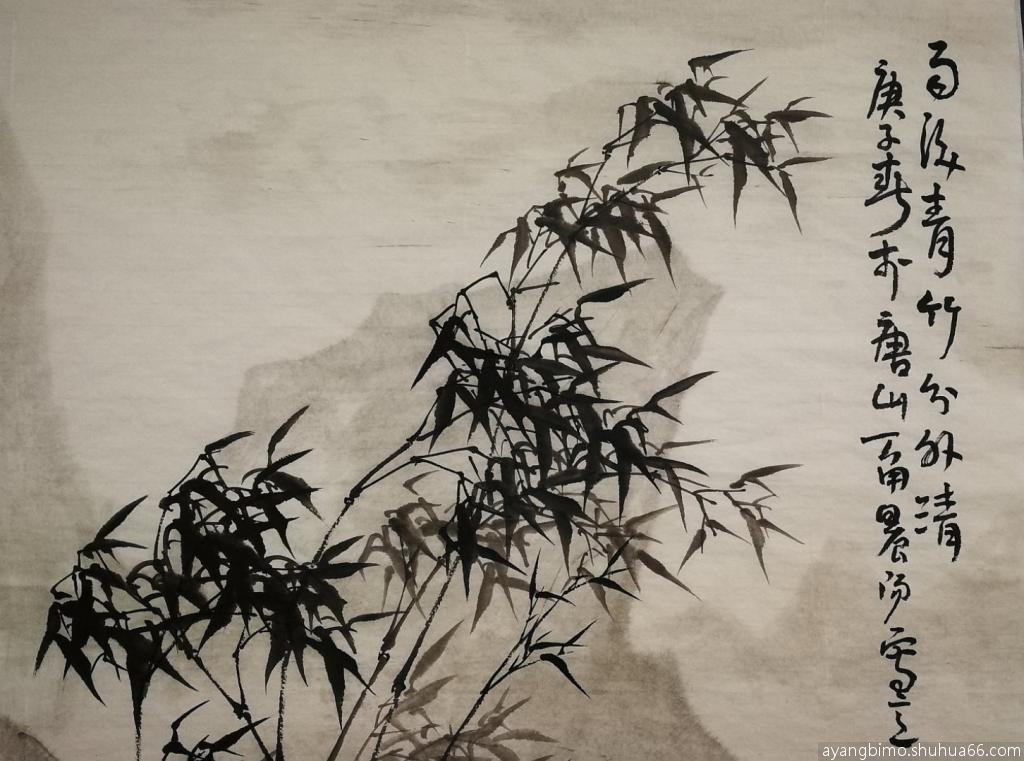 雨后青竹分外清
庚子春于唐山 晨阳写之
ayangbimo.shuhua66.com